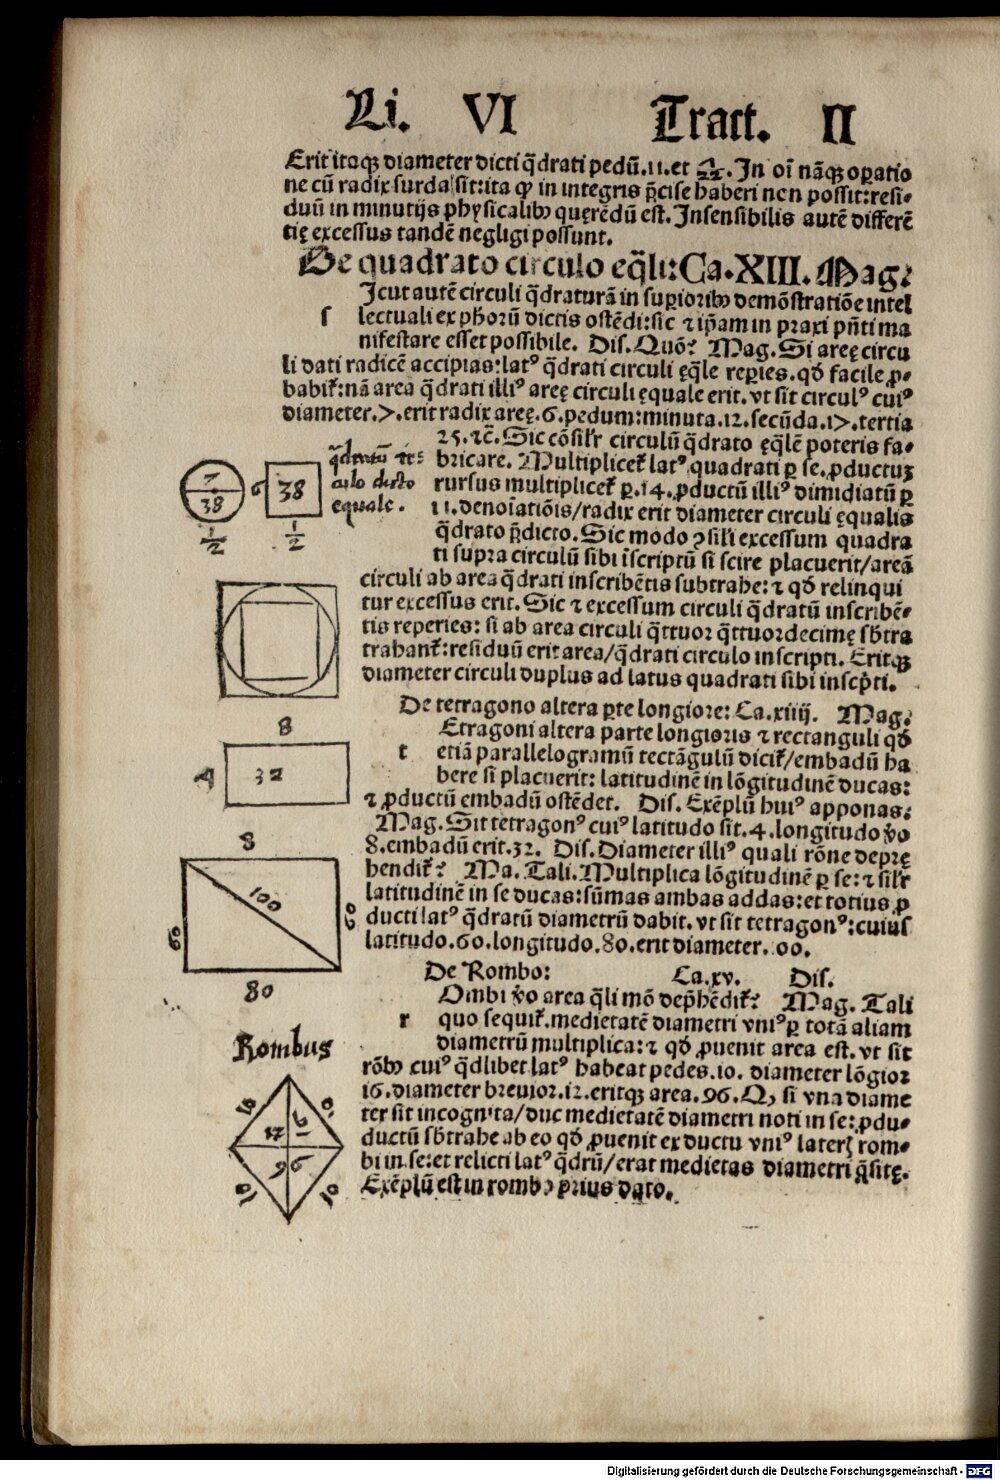 Li. VI Tract. II
Erit itaqꝫ diameter dicti q̄drati pedū.11.et . In oī nāqꝫ oꝑatio
ne cū radix surda sit:ita ꝙ in integris p̄cise haberi non possit:resi-
duū in minutijs phỹsicalibꝰ querēdū est. Insensibilis autē differē
tię excessus tandē negligi possunt.
De quadrato circulo eq̄li: Ca.XIII. Mag:
Icut autē circuli q̄draturā in suꝑioribꝰ demōstratiōe intel
s lectuali ex pħorū dictis ostēdi:sic ⁊ ip̄am in praxi pn̄ti ma
nifestare esset possibile. Dis. Quō? Mag. Si areę circu
li dati radicē accipias:latꝰ q̄drati circuli ęq̄le reꝑies.qđ facile ꝓ-
babiť:nā area q̄drati illiꝰ areę circuli ęquale erit.vt sit circulꝰ cuiꝰ
diameter.7.erit radix areę.6.pedum:minuta.12.secūda.17.tertia
25.⁊c̄. Sic cōsilr circulū q̄drato ęq̄lē poteris fa-
bricare. Multiplicet latꝰ quadrati ꝑ se.ꝓductuꝫ
rursus multiplicet ꝑ.14.ꝓductū illiꝰ dimidiatū ꝑ
11.denoīatiōis/radix erit diameter circuli ęqualis
q̄drato p̄dicto. Sic modo ꝯsili excessum quadra
ti supra circulū sibi īscriptū si scire placuerit/areā
circuli ab area q̄drati inscribētis subtrahe:⁊ qđ relinqui
tur excessus erit. Sic ⁊ excessum circuli q̄dratū inscribē-
tis reperies: si ab area circuli q̄ttuor q̄ttuordecimę sƀtra
trahanť:residuū erit area/q̄drati circulo inscripti. Eritqꝫ
diameter circuli duplus ad latus quadrati sibi inscp̄ti.
7
38
1/2
6
38
1/2
q̄dratū
culo dicto
equale.
De tetragono altera ꝑte longiore: Ca.xiiij. Mag:
Etragoni altera parte longioris ⁊ rectanguli qđ
t etiā parallelogramū rectāgulū diciť/embadū ha
bere si placuerit: latitudinē in lōgitudinē ducas:
⁊ ꝓductū embadū ostēdet. Dis. Exēplū huiꝰ apponas:
Mag. Sit tetragonꝰ cuiꝰ latitudo sit.4.longitudo ꝟo
8.embadū erit.32. Dis. Diameter illiꝰ quali rōne deprę
hendiť? Ma. Tali. Multiplica lōgitudinē ꝑ se:⁊ silr
latitudinē in se ducas:sūmas ambas addas:et totius ꝓ
ducti latꝰ q̄dratū diametrū dabit. vt sit tetragonꝰ:cuius
latitudo.60.longitudo.80.erit diameter. 00.
8
4
32
8
100
60
60
80
De Rombo: Ca.xv. Dis.
Ombi ꝟo area q̄li mō dep̄hēdiť? Mag. Tali
r quo sequiť.medietatē diametri vniꝰ ꝑ totā aliam
diametrū multiplica:⁊ qđ ꝓuenit area est. vt sit
rōbꝰ cuiꝰ q̄dlibet latꝰ habeat pedes.10. diameter lōgior
16.diameter breuior.12.eritqꝫ area.96. Qꝫ si vna diame
ter sit incognita/duc medietatē diametri noti in se:ꝓdu-
ductū sƀtrahe ab eo qđ ꝓuenit ex ductu vniꝰ laterꝫ rom-
bi in se:et relicti latꝰ q̄drū/erat medietas diametri q̄sitę.
Exēplū est in rombo prius dato.
Rombus
10
10
12
6
96
10
10
Digitalisierung gefördert durch die Deutsche Forschungsgemeinschaft - DFG